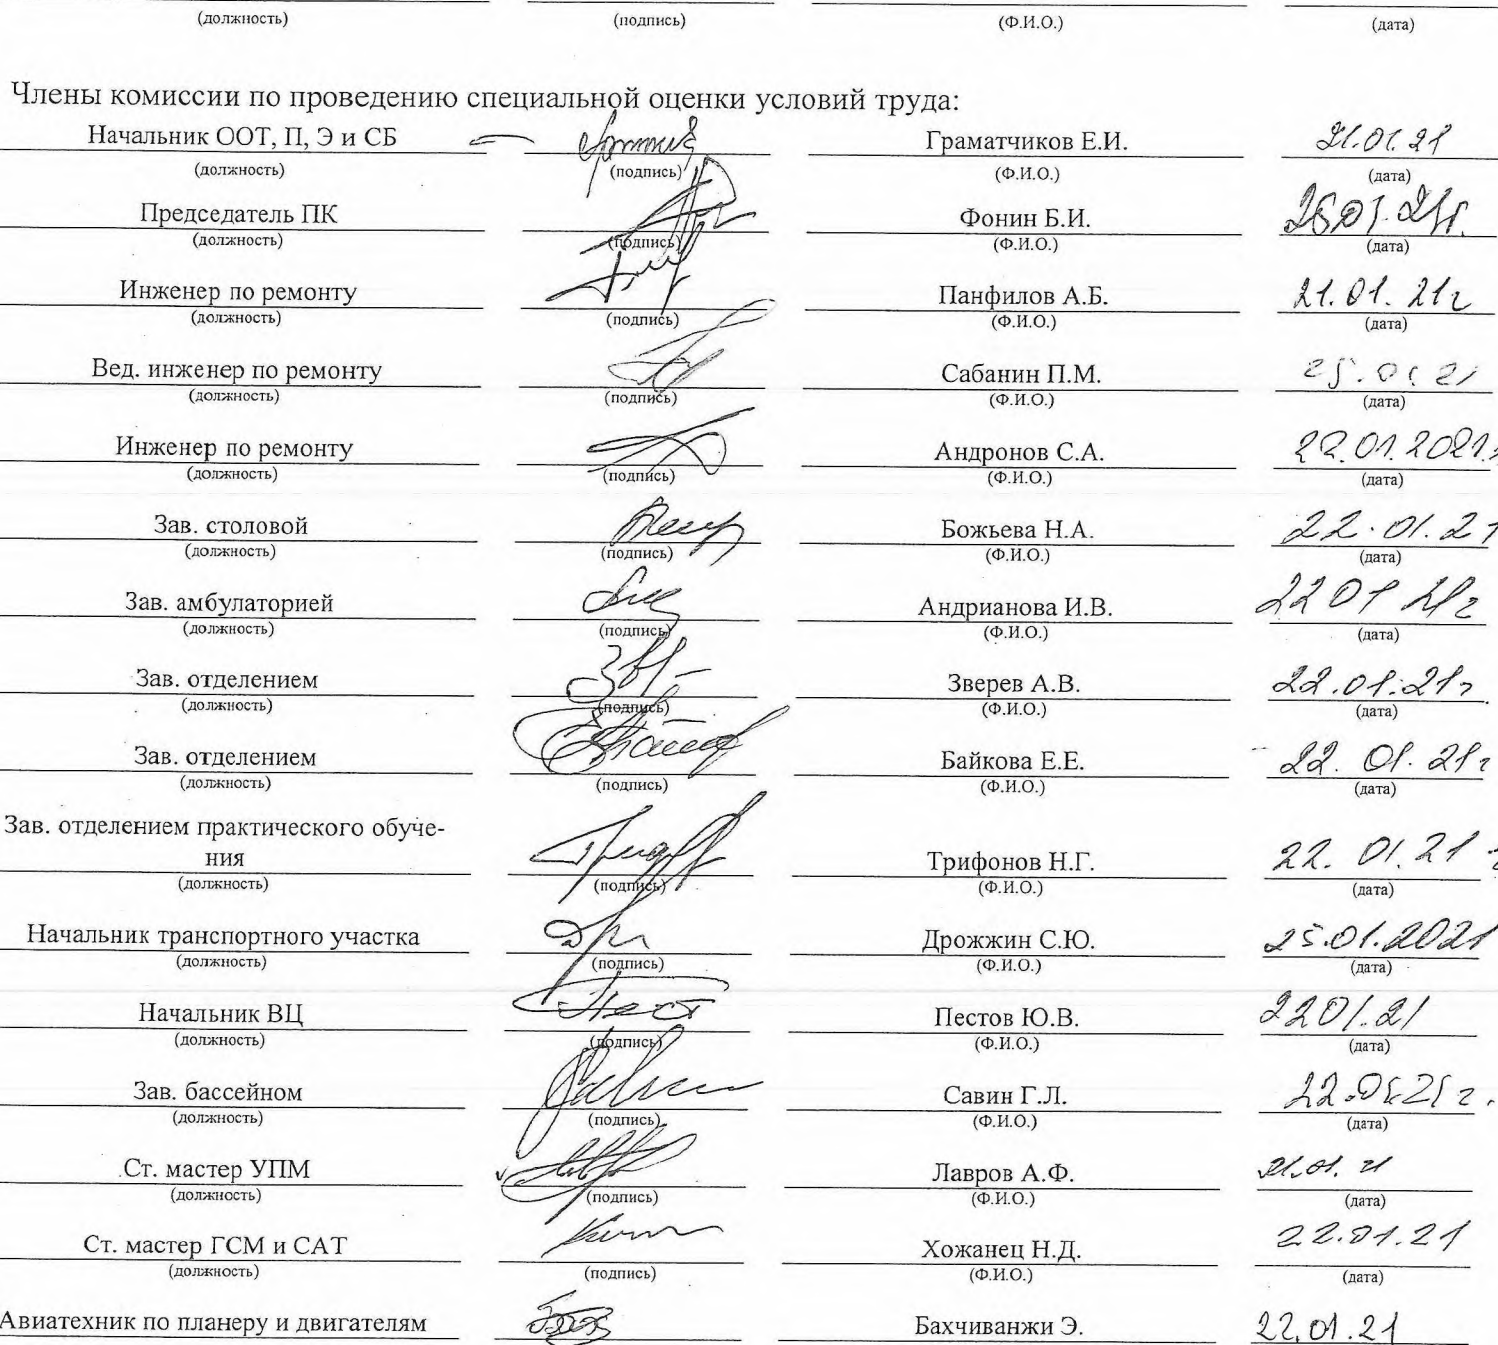 (должность) (подпись) (Ф.И.О.) (дата)
Члены комиссии по проведению специальной оценки условий труда:
Начальник ООТ, П, Э и СБ Граматчиков Е.И. 21.01.21
(должность) (подпись) (Ф.И.О.) (дата)
Председатель ПК Фонин Б.И.
(должность) (подпись) (Ф.И.О.) (дата)
Инженер по ремонту Панфилов А.Б. 21.01.21г
(должность) (подпись) (Ф.И.О.) (дата)
Вед. инженер по ремонту Сабанин П.М. 25.01 21
(должность) (подпись) (Ф.И.О.) (дата)
Инженер по ремонту Андронов С.А. 22.01.2021
(должность) (подпись) (Ф.И.О.) (дата)
Зав. столовой Божьева Н.А. 22.01.21
(должность) (подпись) (Ф.И.О.) (дата)
Зав. амбулаторией Андрианова И.В. 22 01 21г
(должность) (подпись) (Ф.И.О.) (дата)
Зав. отделением Зверев А.В. 22.01.21г
(должность) (подпись) (Ф.И.О.) (дата)
Зав. отделением Байкова Е.Е. 22. 01. 21г
(должность) (подпись) (Ф.И.О.) (дата)
Зав. отделением практического обуче-
ния Трифонов Н.Г. 22. 01. 21 г
(должность) (подпись) (Ф.И.О.) (дата)
Начальник транспортного участка Дрожжин С.Ю. 25.01.2021
(должность) (подпись) (Ф.И.О.) (дата)
Начальник ВЦ Пестов Ю.В. 2201.21
(должность) (подпись) (Ф.И.О.) (дата)
Зав. бассейном Савин Г.Л. 22.01.21 г.
(должность) (подпись) (Ф.И.О.) (дата)
Ст. мастер УПМ Лавров А.Ф. 21.01. 21
(должность) (подпись) (Ф.И.О.) (дата)
Ст. мастер ГСМ и САТ Хожанец Н.Д. 22.01.21
(должность) (подпись) (Ф.И.О.) (дата)
Авиатехник по планеру и двигателям Бахчиванжи Э. 22.01.21